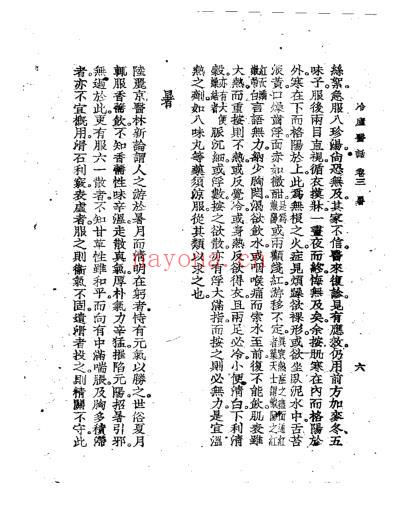 冷廬醫話 卷三 暑 六
絲絮。急服八珍湯尚恐無及。其家不信。醫來復診。見有應效。仍用前方加麥冬五
味子。服後兩目直視。循衣摸牀。一晝夜而終。悔無及矣。余按此寒在內而格陽於
外。寒在下而格陽於上。此為無根之火。症見煩躁欲裸形。或欲坐臥泥水中。舌苔
淡黃。口燥齒浮。面赤如微酣。或兩顴淺紅。游移不定。
言語無力。納少胸悶。渴欲飲水。或咽喉痛。而索水至前復不能飲。肌表雖
大熱而重按則不熱。或反覺冷。或身熱反欲得衣。且兩足必冷。小便清白。下利清
穀。脈沉細。或浮數按之欲散。亦有浮大滿指。而按之則必無力。是宜溫
熱之劑。如八味丸等。藥須涼服。從其類以求之也。
暑
陸麗京醫林新論謂人之游於暑月而清明在躬者。恃有元氣以勝之。世俗夏月
輒服香薷飲。不知香薷性味辛溫。走散真氣。厚朴氣力辛猛。摧陷元陽。招暑引邪。
無過於此。更有服六一散者。不知甘草性雖和平。而向有中滿喘脹。及胸多積滯
者。亦不宜概用。滑石利竅。表虛者服之則衞氣不固。遺滑者投之則精關不守。此